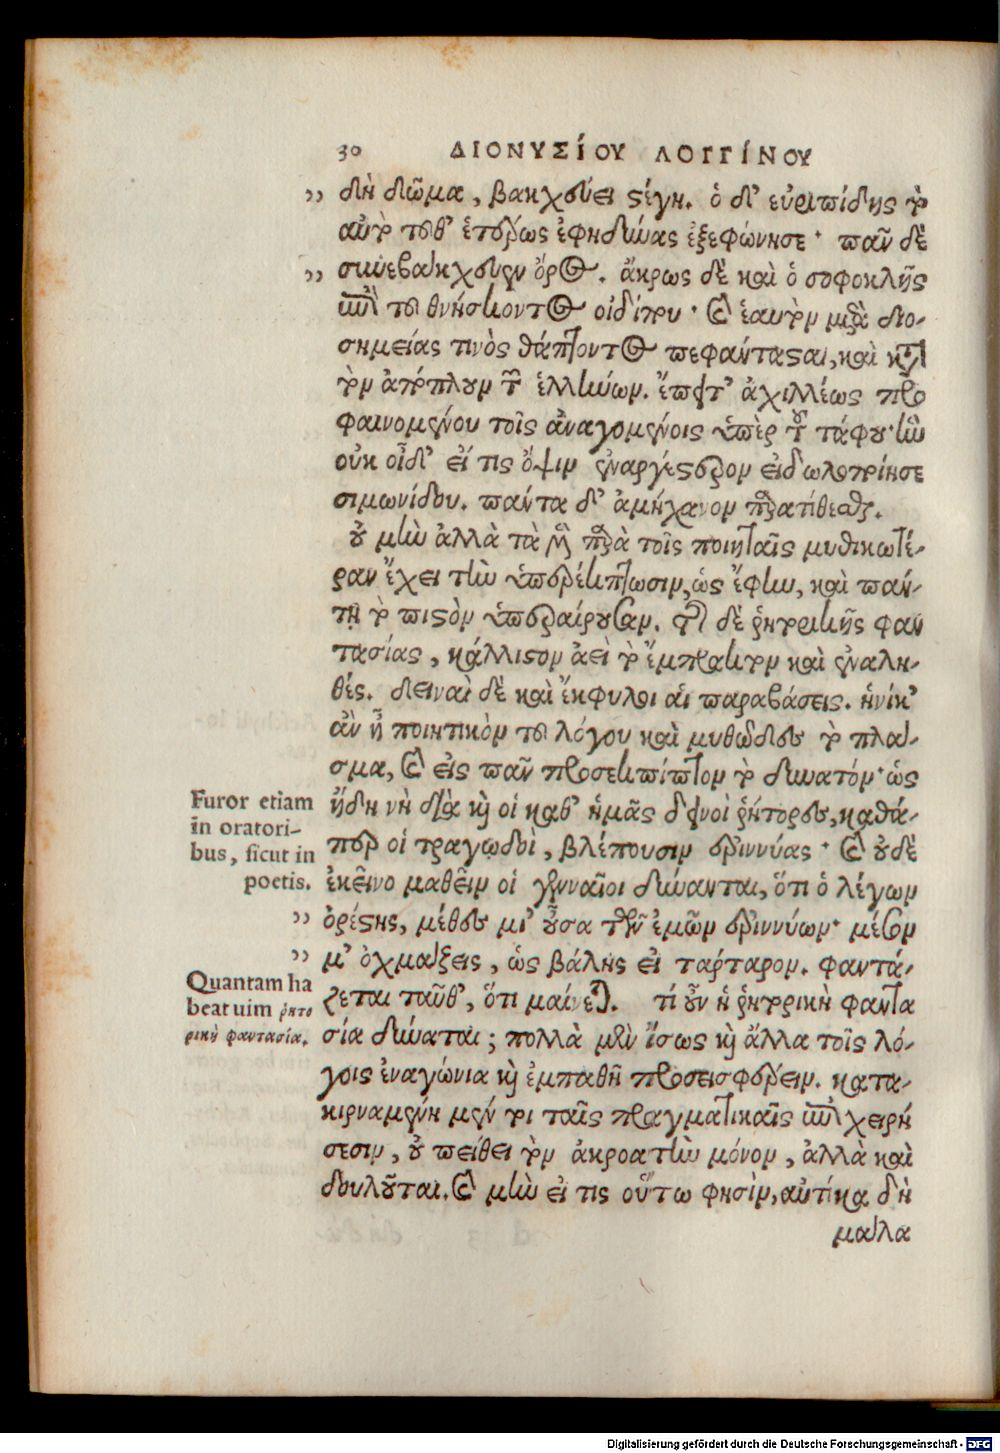 30 ΔΙΟΝΥΣΊΟΥ ΛΟΓΓΊΝΟΥ
,, δὴ δῶμα, βακχεύει στέγη. ὁ δ' εὐριπίδης τὸ
αὐτὸ τοῦθ' ἑτέρως ἐφηδύνας ἐξεφώνησε· πᾶν δὲ
,, συνεβάκχευεν ὄρος. ἄκρως δὲ καὶ ὁ σοφοκλῆς
ἐπὶ τοῦ θνήσκοντος οἰδίπου· καὶ ἑαυτὸν μετὰ διο-
σημείας τινὸς θάπτοντος πεφάντασται, καὶ κατὰ
τὸν ἀπόπλουν τῶν ἑλλήνων. ἔπειτ' ἀχιλλέως προ
φαινομένου τοῖς ἀναγομένοις ὑπὲρ τοῦ τάφου· ἣν
οὐκ οἶδ' εἴ τις ὄψιν ἐναργέστερον εἰδωλοποίησε
σιμωνίδου. πάντα δ' ἀμήχανον παρατίθεσθαι.
οὐ μὴν ἀλλὰ τὰ μὲν παρὰ τοῖς ποιηταῖς μυθικωτέ-
ραν ἔχει τὴν ὑπερέκπτωσιν, ὡς ἔφην, καὶ πάν-
τη τὸ πιστὸν ὑπεραίρουσαν. τῆς δὲ ῥητορικῆς φαν
τασίας, κάλλιστον ἀεὶ τὸ ἔμπρακτον καὶ ἐναλη-
θές. δειναὶ δὲ καὶ ἔκφυλοι αἱ παραβάσεις. ἡνίκ'
ἂν ᾖ ποιητικὸν τοῦ λόγου καὶ μυθῶδες τὸ πλά-
σμα, καὶ εἰς πᾶν προσεκπίπτον τὸ δυνατόν· ὡς
Furor etiam
in oratori-
bus, sicut in
poetis.
ἤδη νὴ δία καὶ οἱ καθ' ἡμᾶς δεινοὶ ῥήτορες, καθά-
περ οἱ τραγῳδοὶ, βλέπουσιν ἐριννύας· καὶ οὐδὲ
ἐκεῖνο μαθεῖν οἱ γενναῖοι δύνανται, ὅτι ὁ λέγων
,, ὀρέστης, μέθες μί' οὖσα τῶν ἐμῶν ἐριννύων· μέσον
,, μ' ὀχμάζεις, ὡς βάλῃς εἰ τάρταρον. φαντά-
Quantam ha
beat uim ῥητο
ρικὴ φαντασία.
ζεται ταῦθ', ὅτι μαίνεται. τί οὖν ἡ ῥητορικὴ φαντα
σία δύναται; πολλὰ μὲν ἴσως καὶ ἄλλα τοῖς λό-
γοις ἐναγώνια καὶ ἐμπαθῆ προσεισφέρειν. κατα-
κιρναμένη μέν τοι ταῖς πραγματικαῖς ἐπιχειρή
σεσιν, οὐ πείθει τὸν ἀκροατὴν μόνον, ἀλλὰ καὶ
δουλοῦται. καὶ μὴν εἴ τις οὕτω φησὶν, αὐτίκα δὴ
μάλα
Digitalisierung gefördert durch die Deutsche Forschungsgemeinschaft - DFG